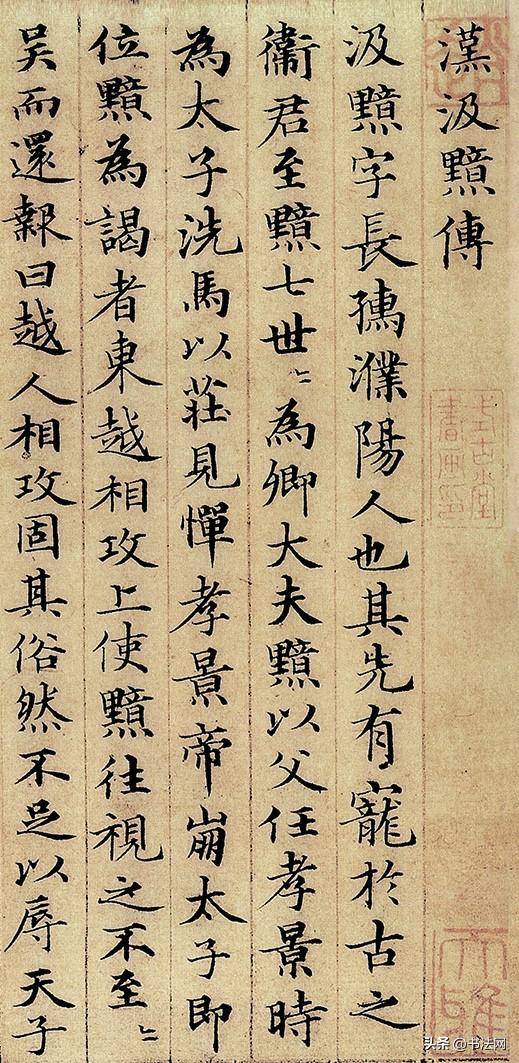 漢汲黯傳
汲黯字長孺濮陽人也其先有寵於古之
衛君至黯七世〻為卿大夫黯以父任孝景時
為太子洗馬以莊見憚孝景帝崩太子即
位黯為謁者東越相攻上使黯往視之不至〻
吳而還報曰越人相攻固其俗然不足以辱天子
式古堂
書畫印
大雅
头条 @书法网